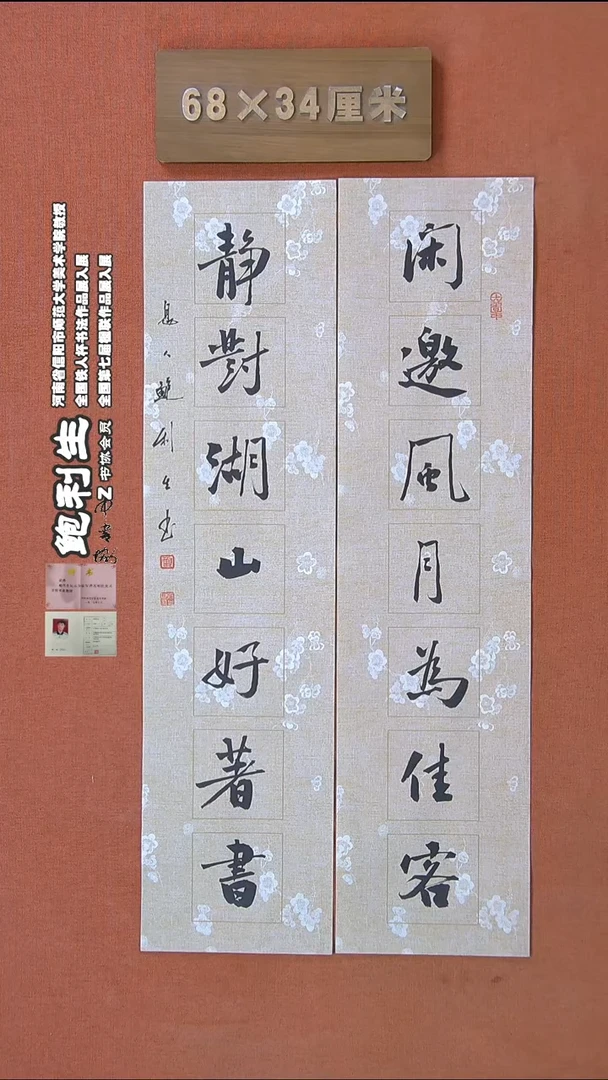 68×34厘米
闲邀風月為佳客
静對湖山好著書
息人鲍利生书
鲍利生
中书协会员
河南省信阳市师范大学美术学院教授
全国铁人杯书法作品展入展
全国第七届楹联作品展入展